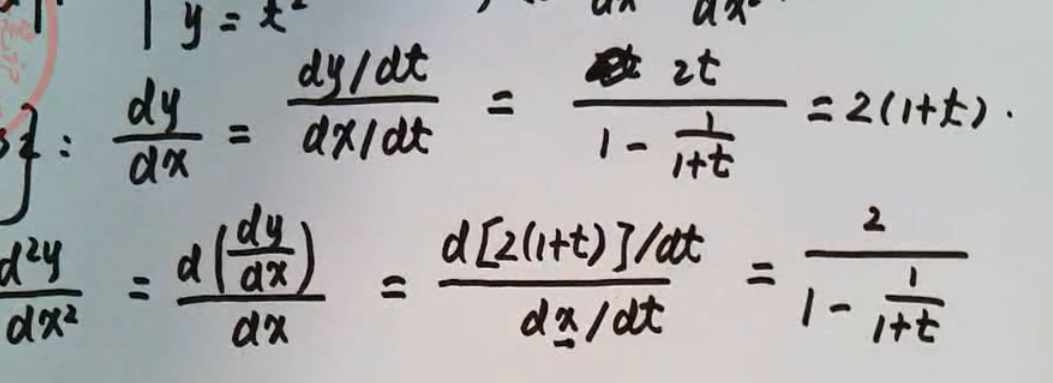 y = t²
dy/dx = (dy/dt)/(dx/dt) = 2t/(1 - 1/(1+t)) = 2(1+t).
d²y/dx² = d(dy/dx)/dx = (d[2(1+t)]/dt)/(dx/dt) = 2/(1 - 1/(1+t))